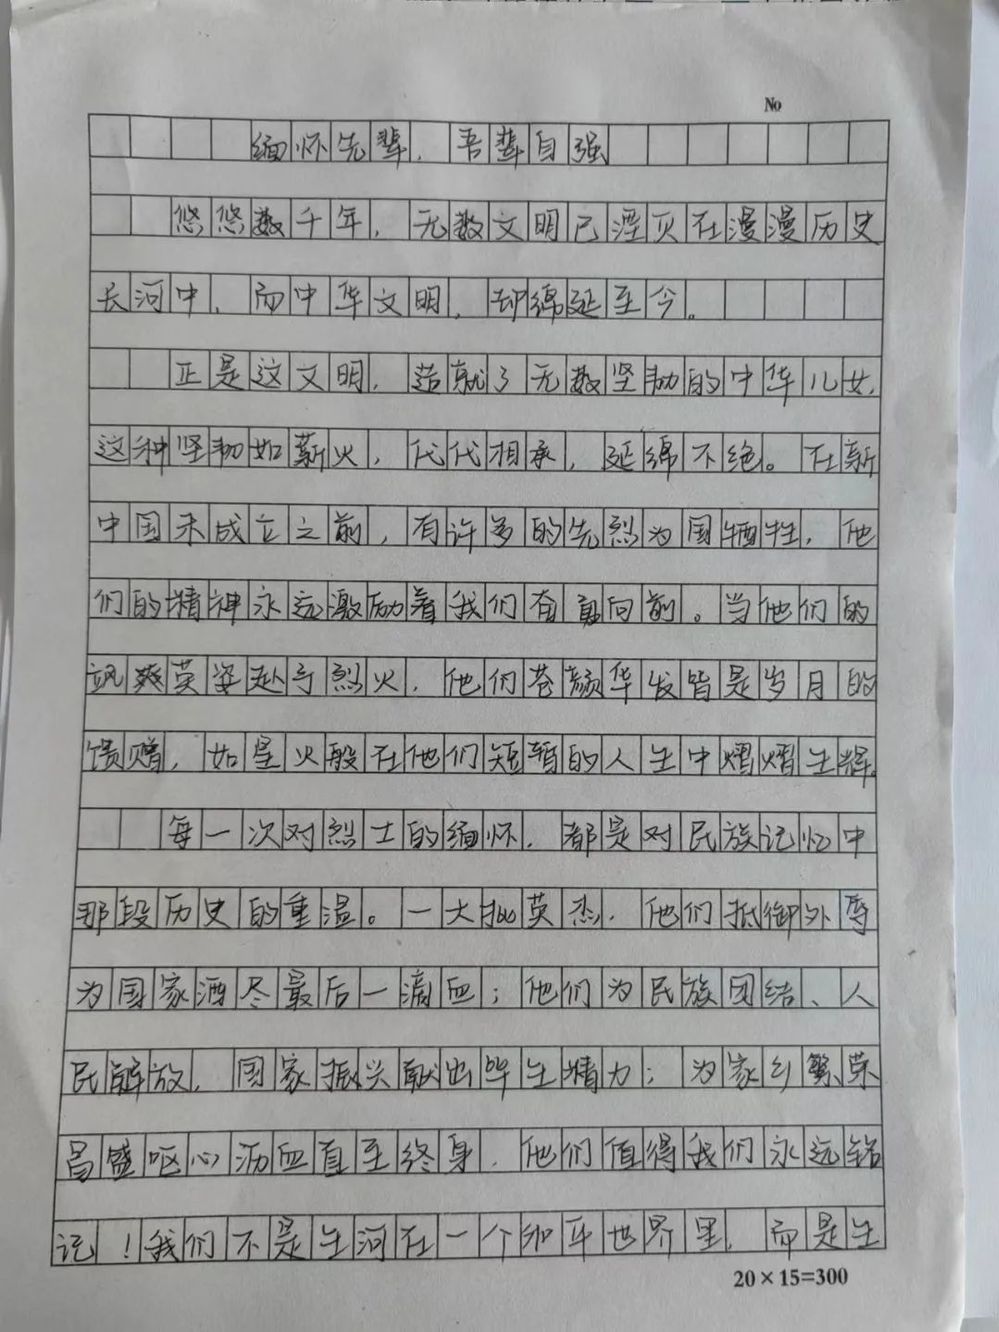 No
缅怀先辈，吾辈自强
悠悠数千年，无数文明已湮灭在漫漫历史
长河中，而中华文明，却绵延至今。
正是这文明，造就了无数坚韧的中华儿女，
这种坚韧如薪火，代代相承，延绵不绝。在新
中国未成立之前，有许多的先烈为国牺牲，他
们的精神永远激励着我们奋勇向前。当他们的
飒爽英姿赴于烈火，他们苍颜华发皆是岁月的
馈赠，如星火般在他们短暂的人生中熠熠生辉。
每一次对烈士的缅怀，都是对民族记忆中
那段历史的重温。一大批英杰，他们抵御外辱
为国家洒尽最后一滴血；他们为民族团结、人
民解放，国家振兴献出毕生精力；为家乡繁荣
昌盛呕心沥血直至终身，他们值得我们永远铭
记！我们不是生河在一个和平世界里，而是生
20×15=300